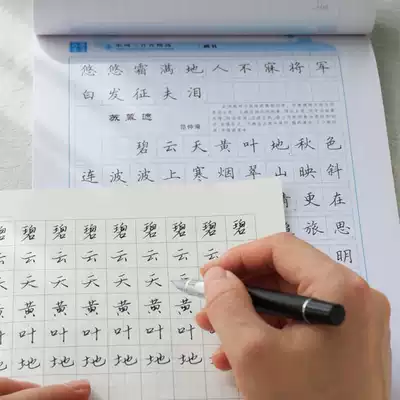 悠悠霜满地人不寐将军
白发征夫泪
苏幕遮
范仲淹
碧云天黄叶地秋色
连波波上寒烟翠山映斜
更在
旅思
明
碧碧碧碧碧碧碧碧
云云云云云云云
天天天天天天天
黄黄黄黄黄黄
叶叶叶叶叶叶
地地地地地地